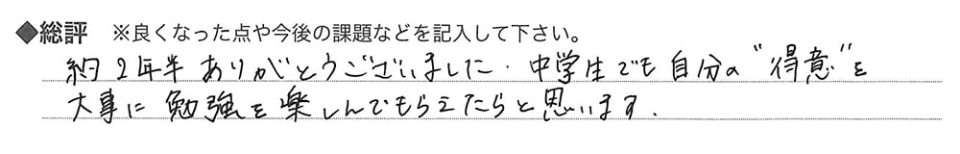 ◆総評　※良くなった点や今後の課題などを記入して下さい。
約2年半ありがとうございました. 中学生でも自分の"得意"を
大事に勉強を楽しんでもらえたらと思います.